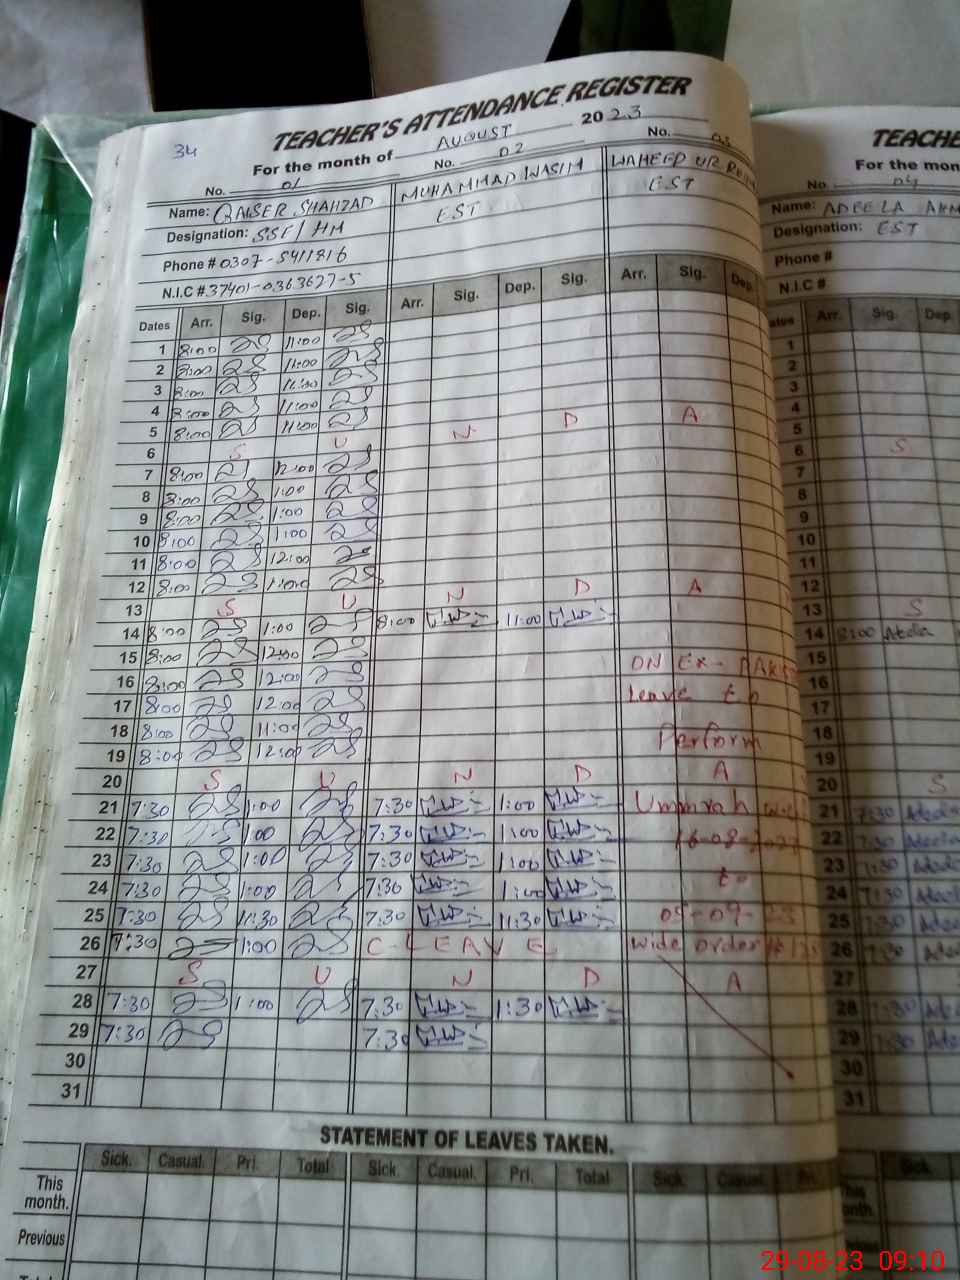 34
TEACHER'S ATTENDANCE REGISTER
For the month of AUGUST 2023
No. 01 No. 02 No. 03
Name: QAISER SHAHZAD MUHAMMAD WASIM WAHEED UR
Designation: SSE/HM EST EST
Phone # 0307-5411816
N.I.C # 37401-0363627-5
Dates Arr. Sig. Dep. Sig. Arr. Sig. Dep. Sig. Arr. Sig. Dep.
1 8:00 11:00
2 8:00 11:00
3 8:00
4 8:00 11:00
5 8:00 11:00
6 S U N D A
7 8:00 12:00
8 8:00 1:00
9 8:00 1:00
10 8:00 1:00
11 8:00 12:00
12 8:00 1:00
13 S U N D A
14 8:00 1:00 8:00 11:00
15 8:00 12:00
16 8:00 12:00 ON EX-
17 8:00 12:00 Leave to
18 8:00 11:00 Perform
19 8:00 12:00
20 S U N D A
21 7:30 1:00 7:30 1:00 Ummrah
22 7:30 1:00 7:30 1:00
23 7:30 1:00 7:30 1:00
24 7:30 1:00 7:30 1:00 to
25 7:30 11:30 7:30 11:30 05-09-23
26 7:30 1:00 C-LEAVE wide order #
27 S U N D A
28 7:30 1:00 7:30 1:30
29 7:30 7:30
30
31
STATEMENT OF LEAVES TAKEN.
Sick. Casual. Pri. Total Sick. Casual. Pri. Total Sick. Casual. Pri.
This month.
Previous
TEACHE
For the mon
No. 04
Name: ADEELA AHM
Designation: EST
Phone #
N.I.C #
ates Arr. Sig. Dep.
1
2
3
4
5
6 S
7
8
9
10
11
12
13 S
14 8:00 Adeela
15
16
17
18
19
20 S
21 7:30 Adeela
22 7:30 Adeela
23 7:30 Adeela
24 7:30 Adeela
25 7:30 Adeela
26 7:30 Adeela
27
28 7:30 Ade
29 7:30 Ade
30
31
Sick.
29-08-23 09:10